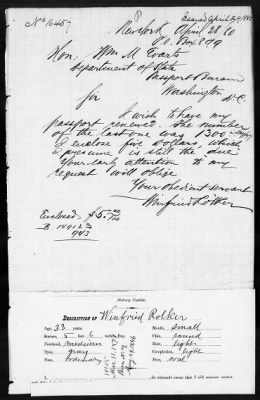 No 10457
Issued April 29, 1880
New York April 28 80
P.O. Box 899
Hon. Wm M. Evarts
Department of State
Passport Bureau
Washington
D.C.
Sir
I wish to have my
passport renewed, the number
of the last one was 1300
I enclose five dollars, which
I presume is still the due
Your early attention to my
request will oblige
Your obedient servant
Winfried Rolker
Enclosed $5.00/100
B
943
Notary Public.
DESCRIPTION OF Winfried Rolker
Age, 33
Mouth, small
Stature, 5 6
Chin, round
Forehead, medium
Hair, light
Eyes, gray
Complexion, light
Nose, ordinary
Face, oval